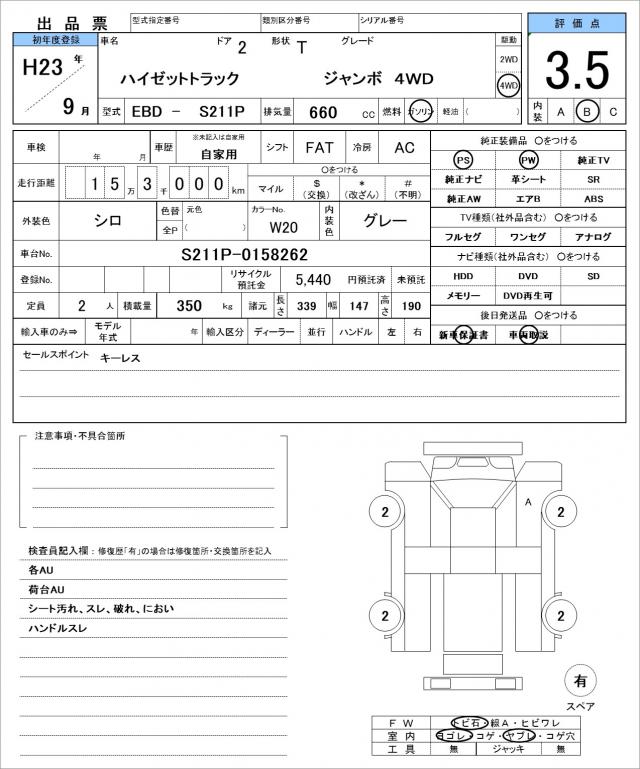 出品票 型式指定番号 類別区分番号 シリアル番号 評価点
初年度登録 車名 ドア 2 形状 T グレード 駆動
H23 年 ハイゼットトラック ジャンボ 4WD 2WD 3.5
9 月 4WD
型式 EBD - S211P 排気量 660 CC 燃料 ガソリン 軽油 ( ) 内装 A B C
車検 年 月 車歴 ※未記入は自家用 自家用 シフト FAT 冷房 AC 純正装備品 〇をつける
PS PW 純正TV
走行距離 1 5 万 3 千 0 0 0 km 〇をつける
マイル $ (交換) * (改ざん) # (不明) 純正ナビ 革シート SR
純正AW エアB ABS
外装色 シロ 色替 元色 カラーNo. 内装色 グレー TV種類(社外品含む) 〇をつける
全P ( ) W20 フルセグ ワンセグ アナログ
車台No. S211P-0158262 ナビ種類(社外品含む) 〇をつける
登録No. リサイクル預託金 5,440 円預託済 未預託 HDD DVD SD
定員 2 人 積載量 350 kg 諸元 長さ 339 幅 147 高さ 190 メモリー DVD再生可
後日発送品 〇をつける
輸入車のみ⇒ モデル年式 年 輸入区分 ディーラー 並行 ハンドル 左 右 新車保証書 車両取説
セールスポイント キーレス
注意事項・不具合箇所
A
2 2
検査員記入欄：修復歴「有」の場合は修復箇所・交換箇所を記入
各AU
荷台AU
シート汚れ、スレ、破れ、におい
ハンドルスレ
2 2
有
スペア
FW トビ石・線A・ヒビワレ
室内 ヨゴレ・コゲ・ヤブレ・コゲ穴
工具 無 ジャッキ 無